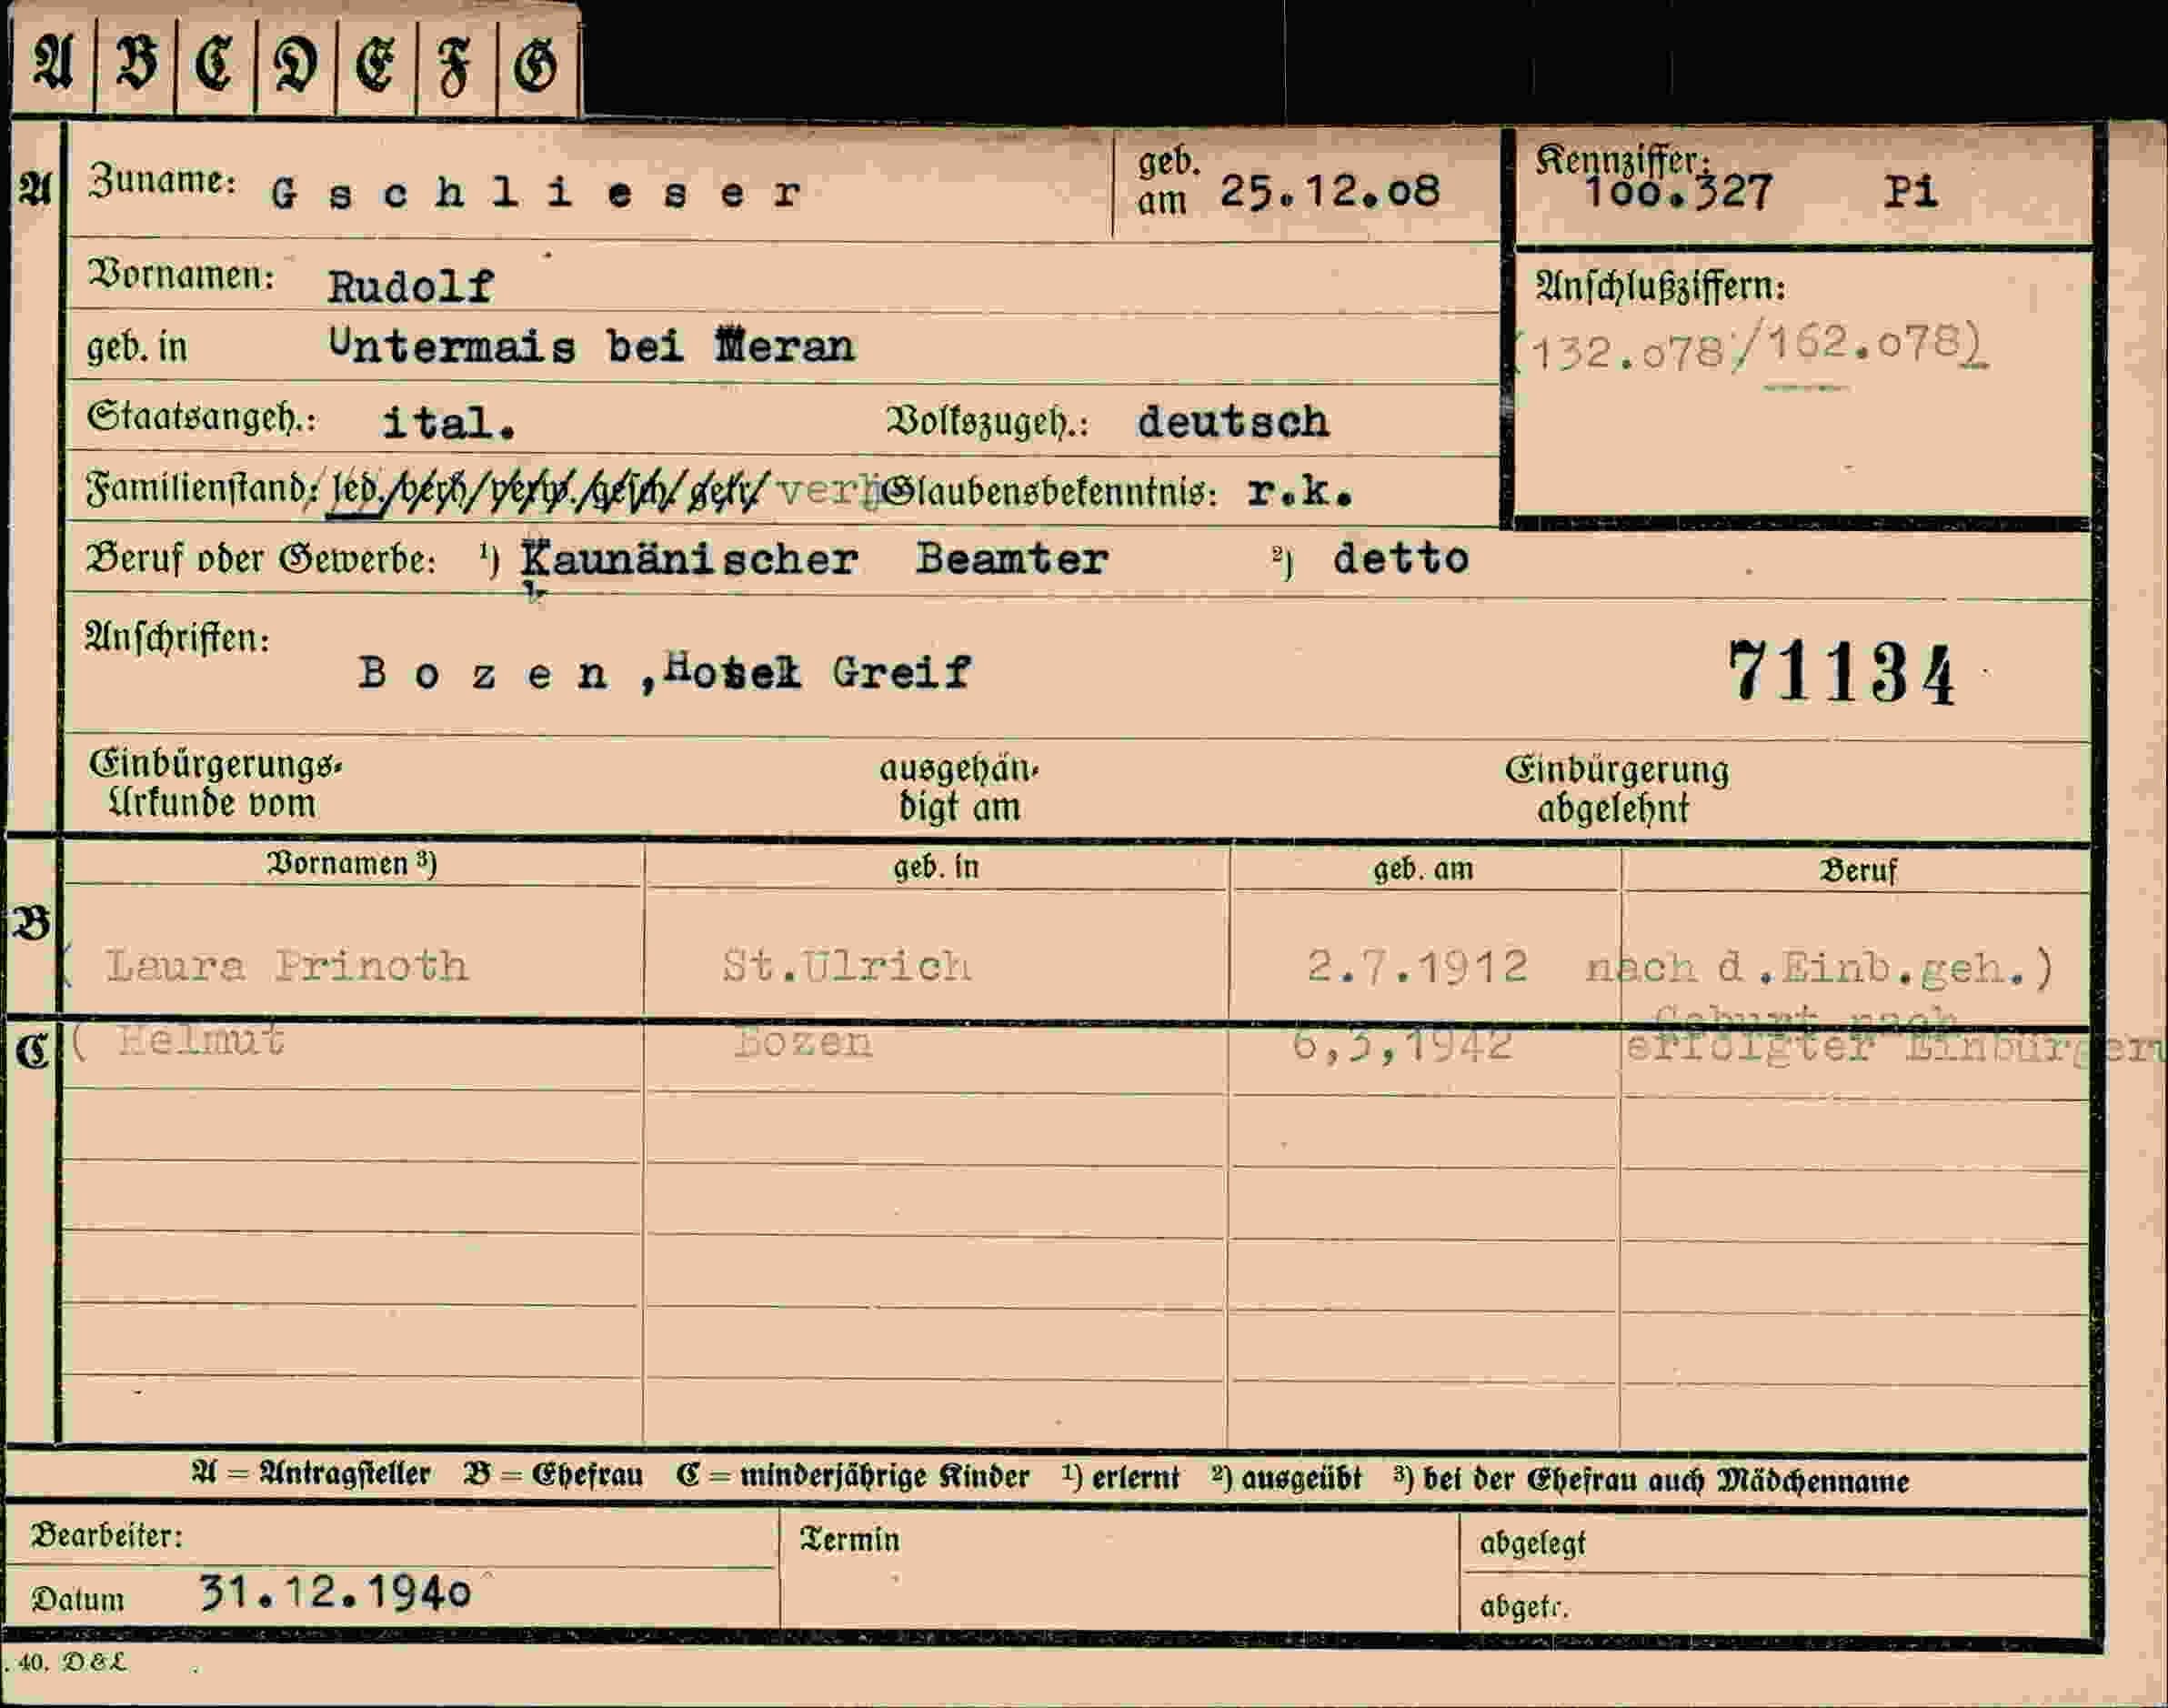 A B C D E F G
A Zuname: Gschlieser geb. am 25.12.o8 Kennziffer: 1oo.327 Pi
Vornamen: Rudolf Anschlußziffern:
geb. in Untermais bei Meran (132.o78/162.o78)
Staatsangeh.: ital. Volkszugeh.: deutsch
Familienstand: led./verh/verw./gesch/getr/ verh Glaubensbekenntnis: r.k.
Beruf oder Gewerbe: ¹) Kaunänischer Beamter ²) detto
Anschriften:
Bozen ,Hotel Greif 71134
Einbürgerungs- ausgehän- Einbürgerung
Urkunde vom digt am abgelehnt
Vornamen ³) geb. in geb. am Beruf
B
( Laura Prinoth St.Ulrich 2.7.1912 nach d.Einb.geh.)
Geburt nach
C ( Helmut Bozen 6,3,1942 erfolgter Einbürgern
A = Antragsteller B = Ehefrau C = minderjährige Kinder ¹) erlernt ²) ausgeübt ³) bei der Ehefrau auch Mädchenname
Bearbeiter: Termin abgelegt
Datum 31.12.194o abgetr.
. 40. D&L